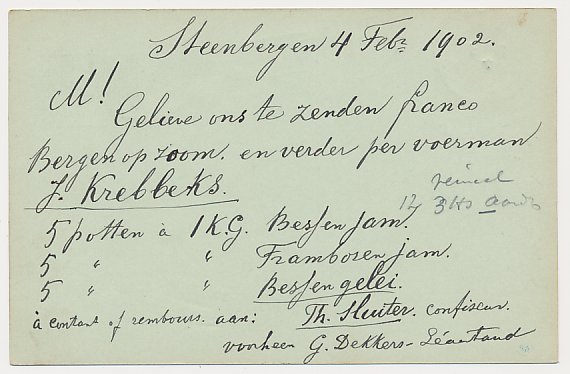 Steenbergen 4 Febr 1902.
M!
Gelieve ons te zenden franco
Bergen op zoom. en verder per voerman
J. Krebbeks.
5 potten à 1 K.G. Bessen jam.
5 " " Frambozen jam.
5 " " Bessen gelei.
à contant of rembours. aan: Th. Sluiter. confiseur.
voorheen G. Dekkers-